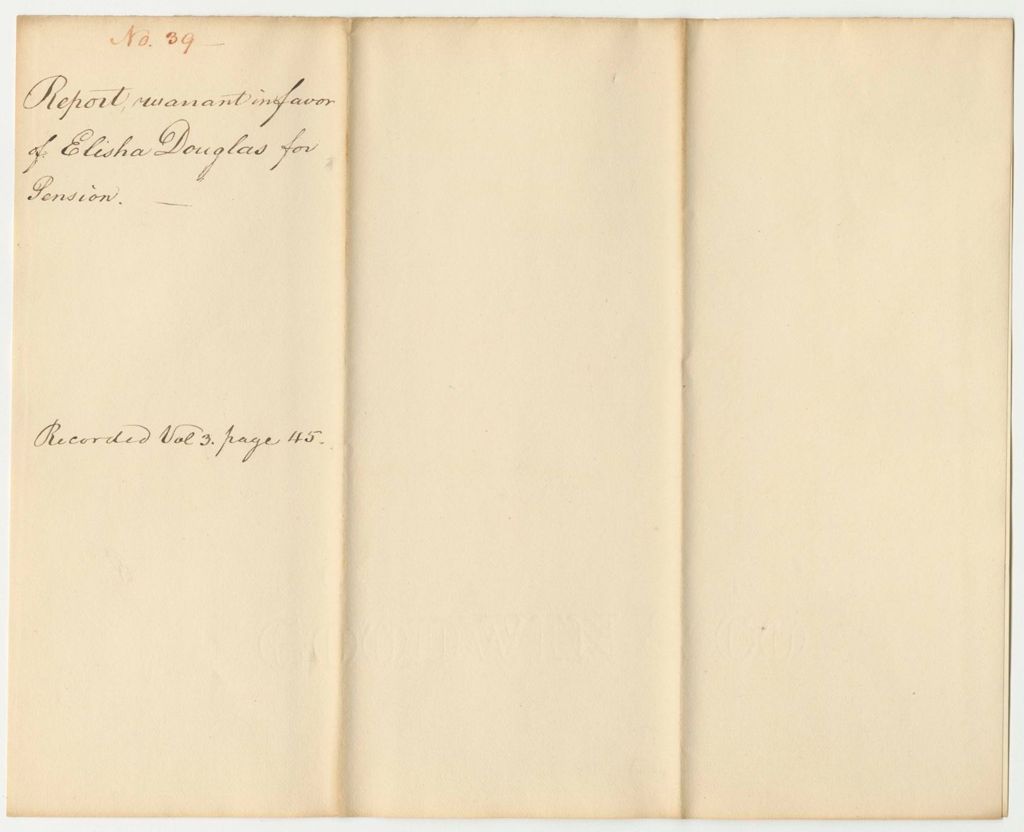 No. 39 —
Report, warrant in favor
of Elisha Douglas for
Pension. —
Recorded Vol 3. page 45.